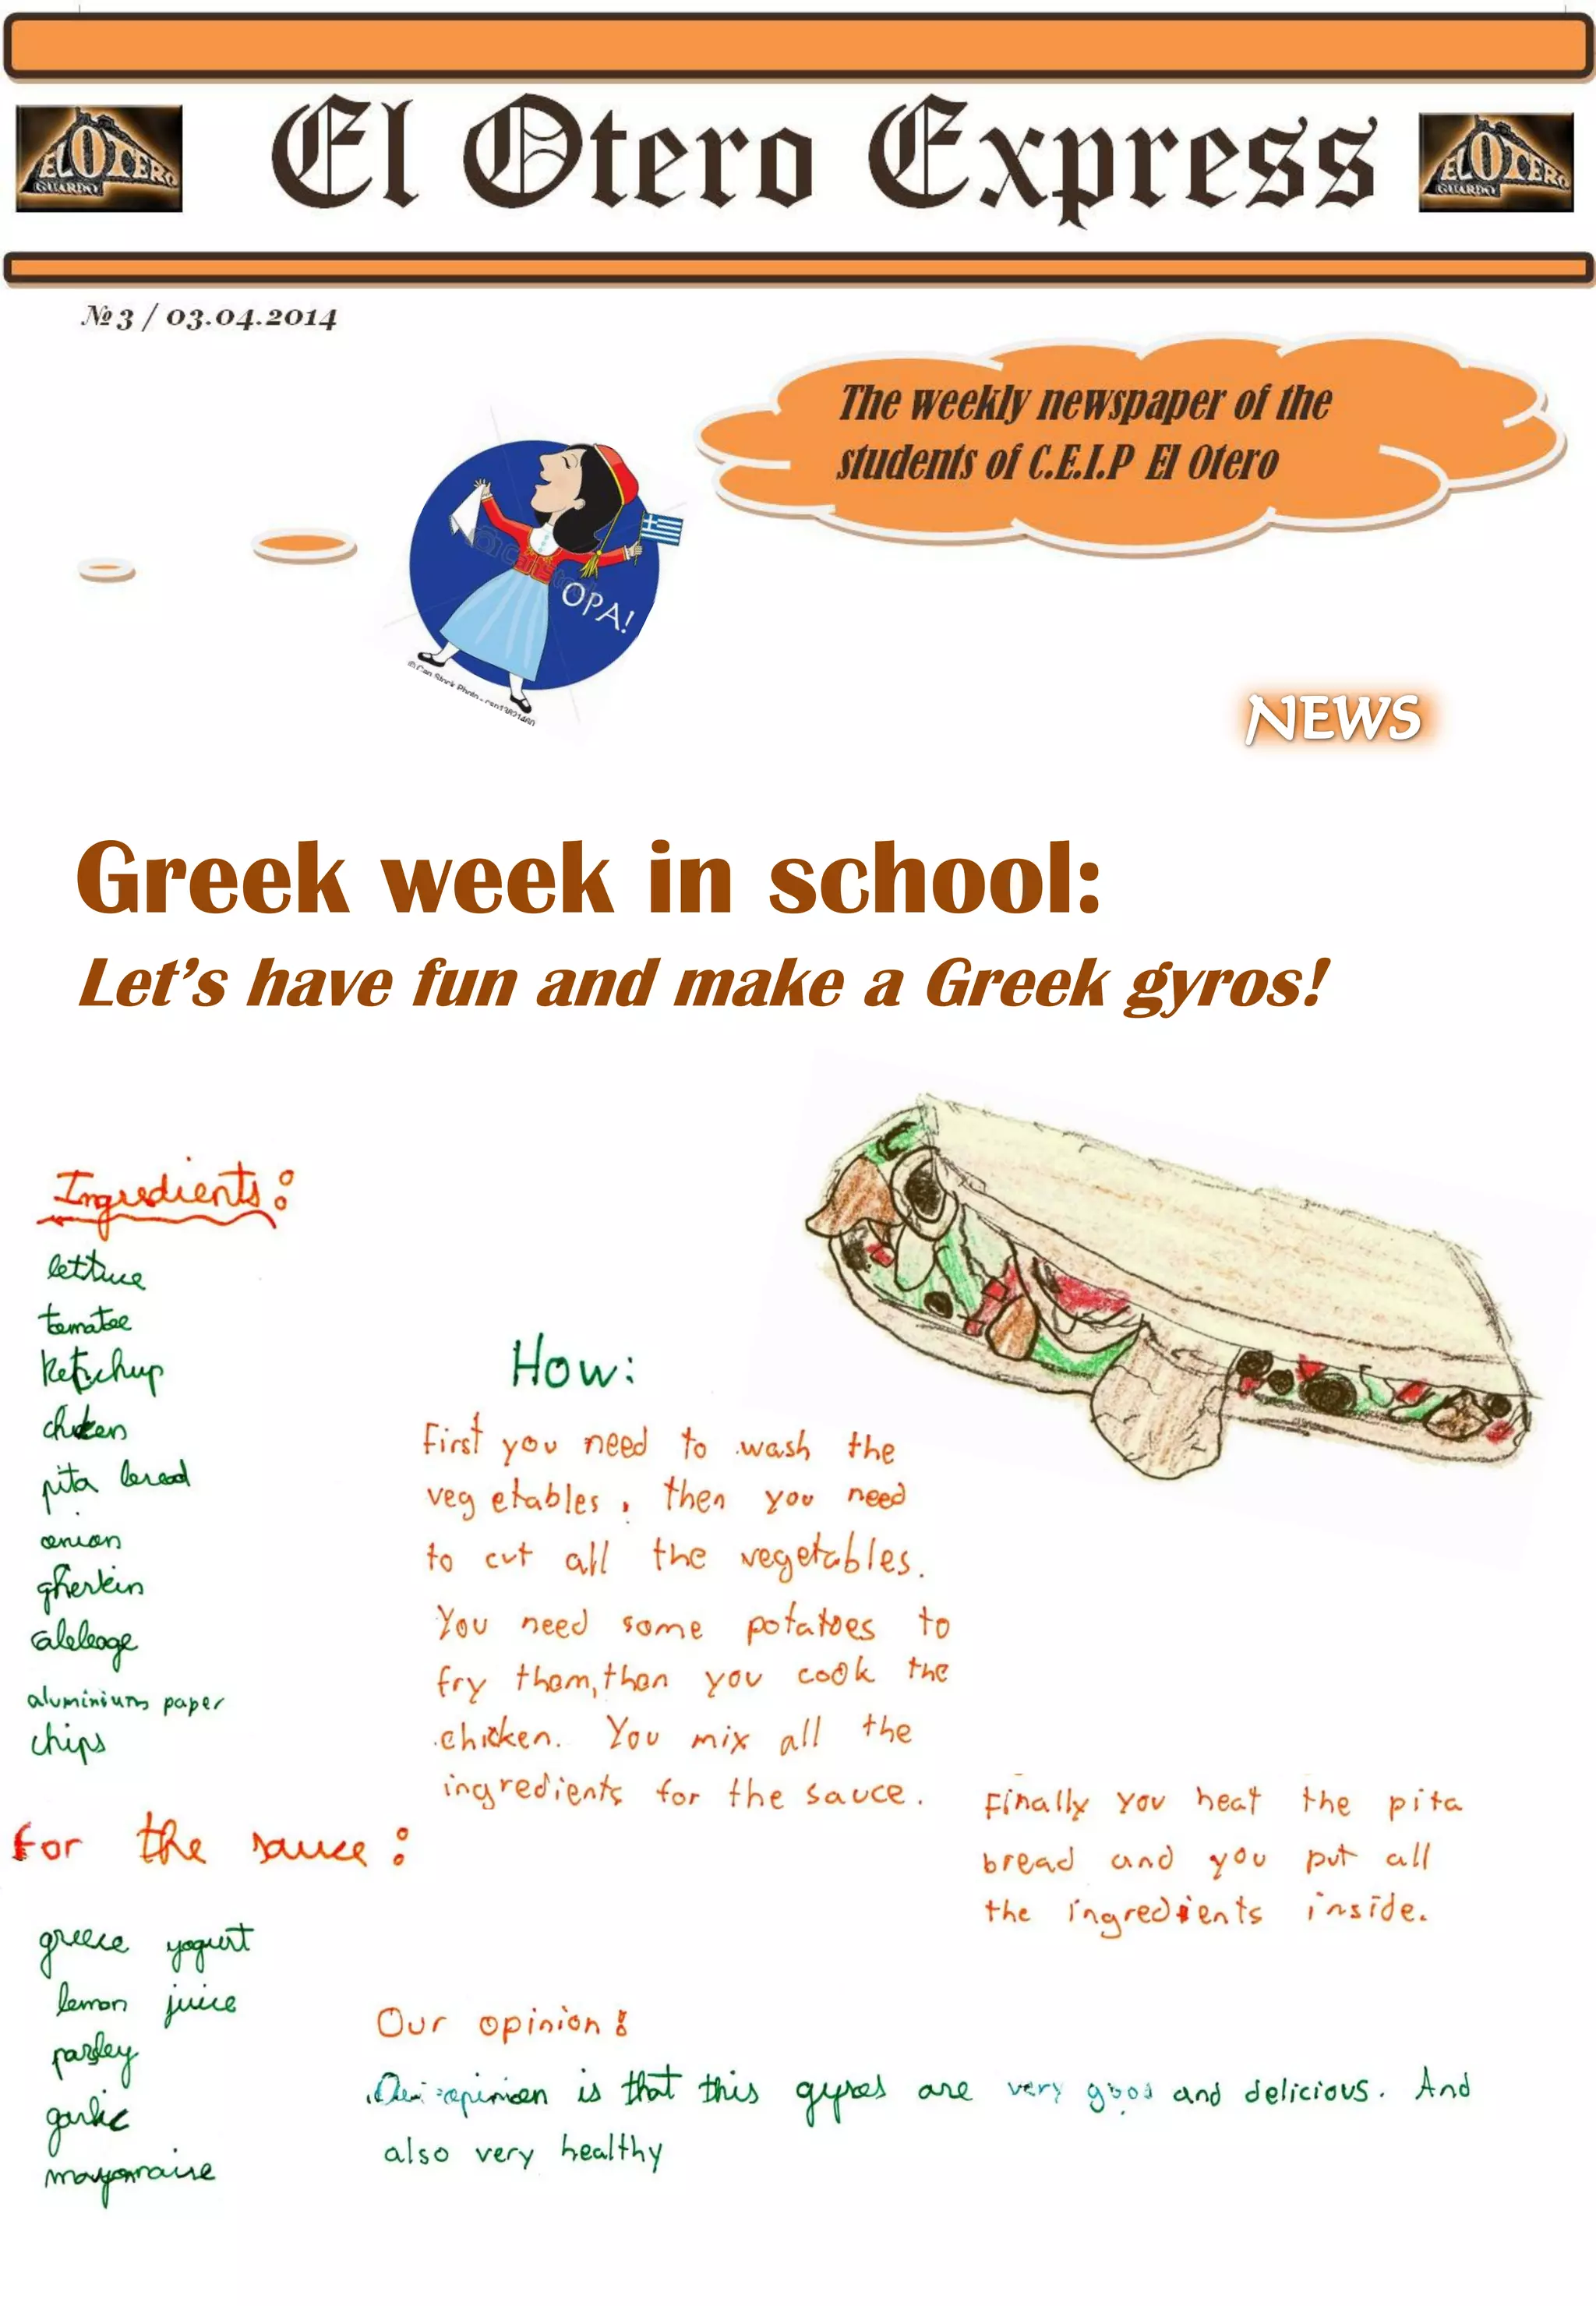 El Otero Express
EL OTERO
GUARDO
EL OTERO
GUARDO
№ 3 / 03.04.2014
The weekly newspaper of the
students of C.E.I.P El Otero
OPA!
NEWS
Greek week in school:
Let's have fun and make a Greek gyros!
Ingredients:
lettuce
tomatoe
ketchup
chicken
pita bread
onion
gherkin
cabbage
aluminium paper
chips
For the sauce:
greece yogurt
lemon juice
parsley
garlic
mayonnaise
How:
First you need to wash the
vegetables, then you need
to cut all the vegetables.
You need some potatoes to
fry them, then you cook the
chicken. You mix all the
ingredients for the sauce.
Finally you heat the pita
bread and you put all
the ingredients inside.
Our opinion:
Our opinion is that this gyros are very good and delicious. And
also very healthy